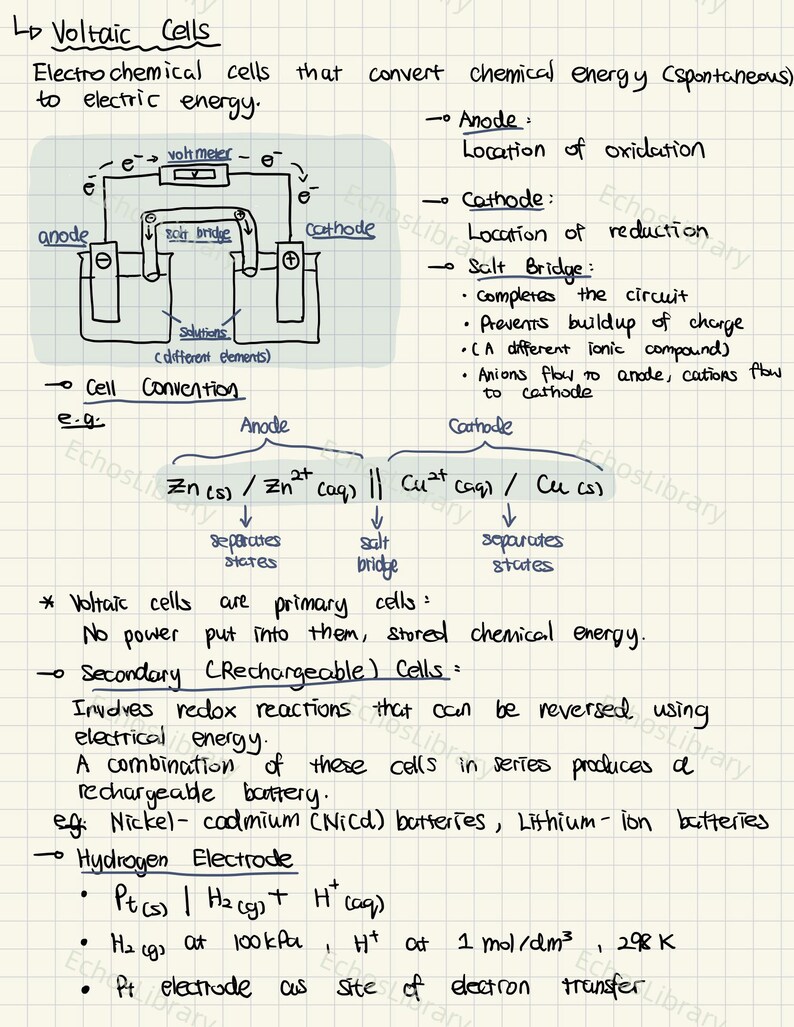 ↳ Voltaic Cells
Electrochemical cells that convert chemical energy (spontaneous)
to electric energy.
e⁻ e⁻ → voltmeter – e⁻ e⁻
V
anode
salt bridge
cathode
⊖ ⊕
⊖ ⊕
solutions
(different elements)
→ Anode:
Location of oxidation
→ Cathode:
Location of reduction
→ Salt Bridge:
• completes the circuit
• Prevents buildup of charge
• (A different ionic compound)
• Anions flow to anode, cations flow
to cathode
→ Cell Convention
e.g.
Anode Cathode
Zn (s) / Zn²⁺ (aq) || Cu²⁺ (aq) / Cu (s)
separates states
salt bridge
separates states
* Voltaic cells are primary cells:
No power put into them, stored chemical energy.
→ Secondary (Rechargeable) Cells:
Involves redox reactions that can be reversed using
electrical energy.
A combination of these cells in series produces a
rechargeable battery.
eg: Nickel-cadmium (NiCd) batteries, Lithium-ion batteries
→ Hydrogen Electrode
• Pt (s) | H₂ (g) + H⁺ (aq)
• H₂ (g) at 100kPa, H⁺ at 1 mol/dm³, 298 K
• Pt electrode as site of electron transfer
EchosLibrary
EchosLibrary
EchosLibrary
EchosLibrary
EchosLibrary
EchosLibrary
EchosLibrary
EchosLibrary
EchosLibrary
EchosLibrary
EchosLibrary
EchosLibrary